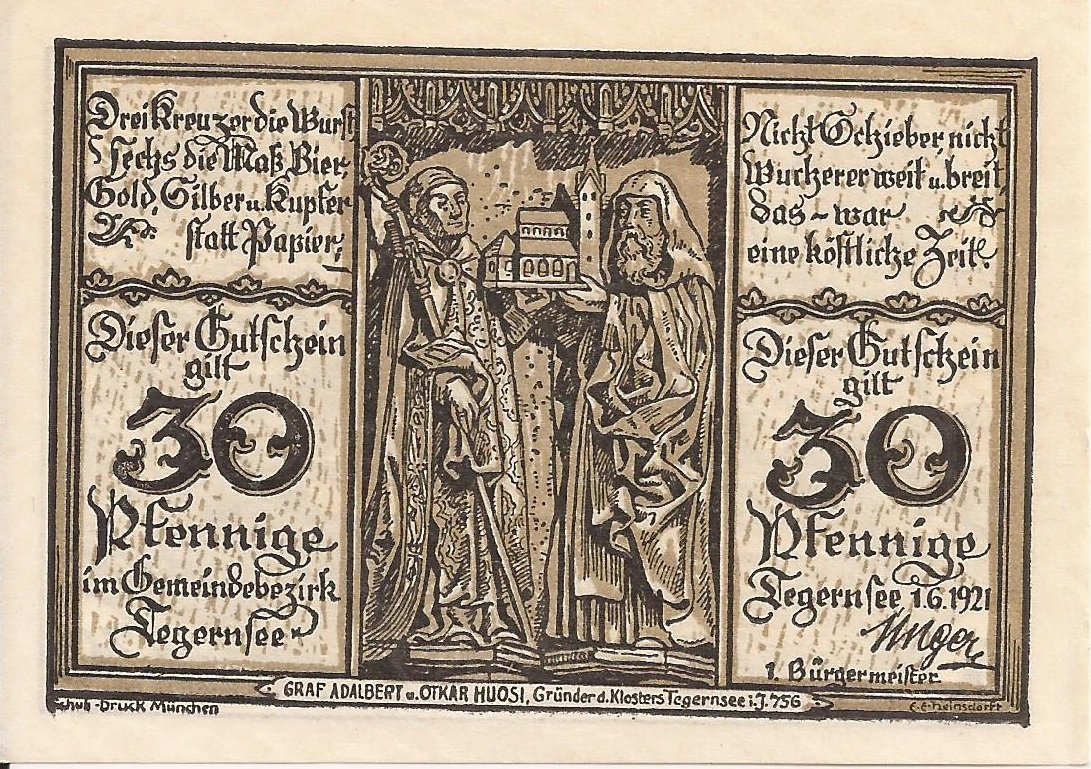 Drei Kreuzer die Wurst
sechs die Maß Bier,
Gold, Silber u. Kupfer
statt Papier,
Dieser Gutschein
gilt
30
Pfennige
im Gemeindebezirk
Tegernsee
Nicht Schieber nicht
Wucherer weit u. breit,
das ~ war
eine köstliche Zeit.
Dieser Gutschein
gilt
30
Pfennige
Tegernsee 1.6.1921
Unger
1. Bürgermeister
GRAF ADALBERT u. OTKAR HUOSI, Gründer d. Klosters Tegernsee i. J. 756
Schuh-Druck München
E.E. Heinsdorff